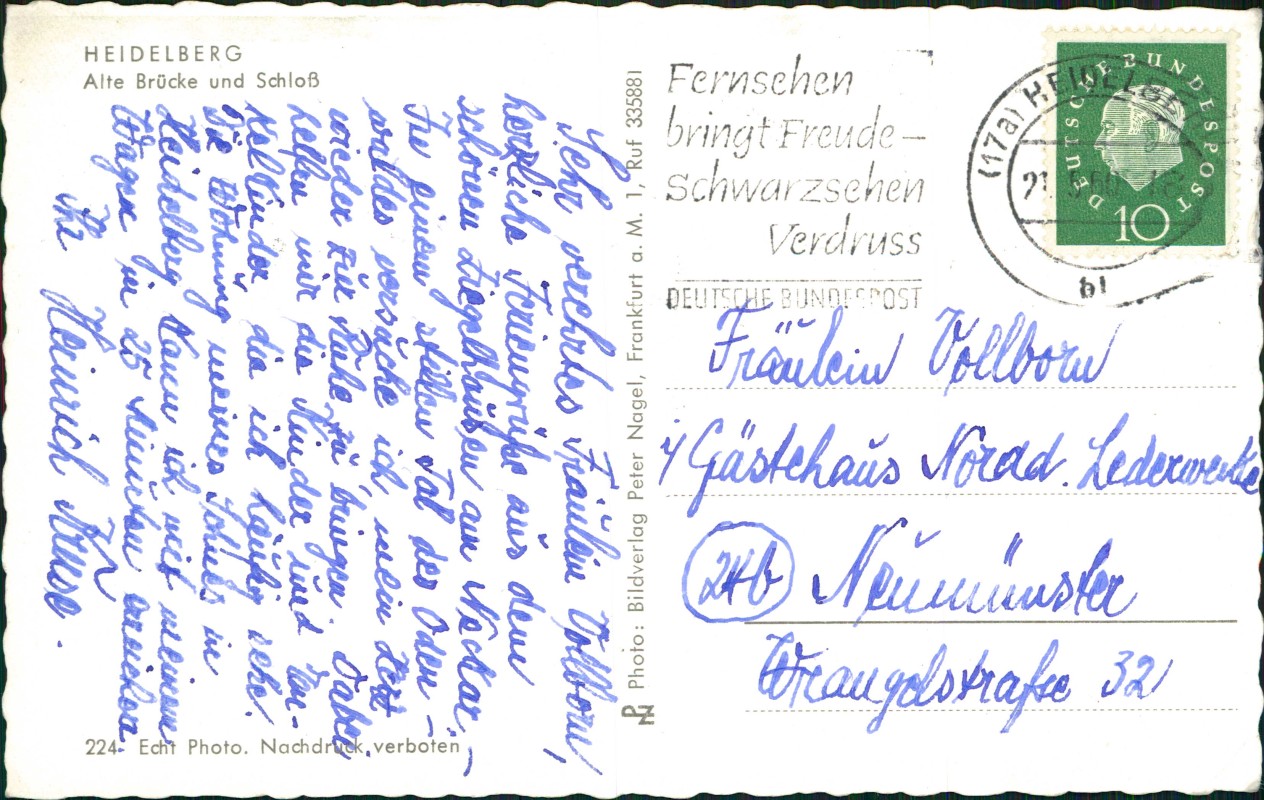 HEIDELBERG
Alte Brücke und Schloß
Sehr verehrtes Fräulein Vollborn,
herzliche Feriengrüße aus dem
schönen Ziegelhausen am Neckar,
In einem stillen Tal des Oden-
waldes versuche ich, mein Herz
wieder zur Ruhe zu bringen. Dabei
helfen mir die Kinder und
die ich häufig sehe.
Die Wohnung meines Sohnes in
Heidelberg kann ich mit meinem
Wagen in 25 Minuten erreichen
Ihr Heinrich
224 Echt Photo. Nachdruck verboten
Photo: Bildverlag Peter Nagel, Frankfurt a. M. 1, Ruf 335881
PN
Fernsehen
bringt Freude –
Schwarzsehen
Verdruss
DEUTSCHE BUNDESPOST
(17a) HEIDELBERG
21. 5. 60 - 18
bl
DEUTSCHE BUNDESPOST
10
Fräulein Vollborn
i/ Gästehaus Nordd. Lederwerke
24b Neumünster
Wrangelstraße 32